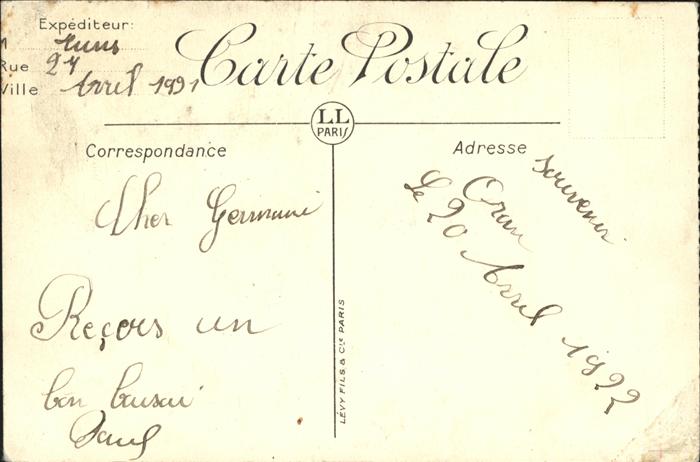 Expéditeur:
M
Rue 24
Ville Avril 1921
Carte Postale
LL
PARIS
Correspondance
Adresse
Cher Germaine
Reçois un
bon baiser
Paul
LÉVY FILS & Cie PARIS
souvenir
Oran
Le 20 Avril 1922